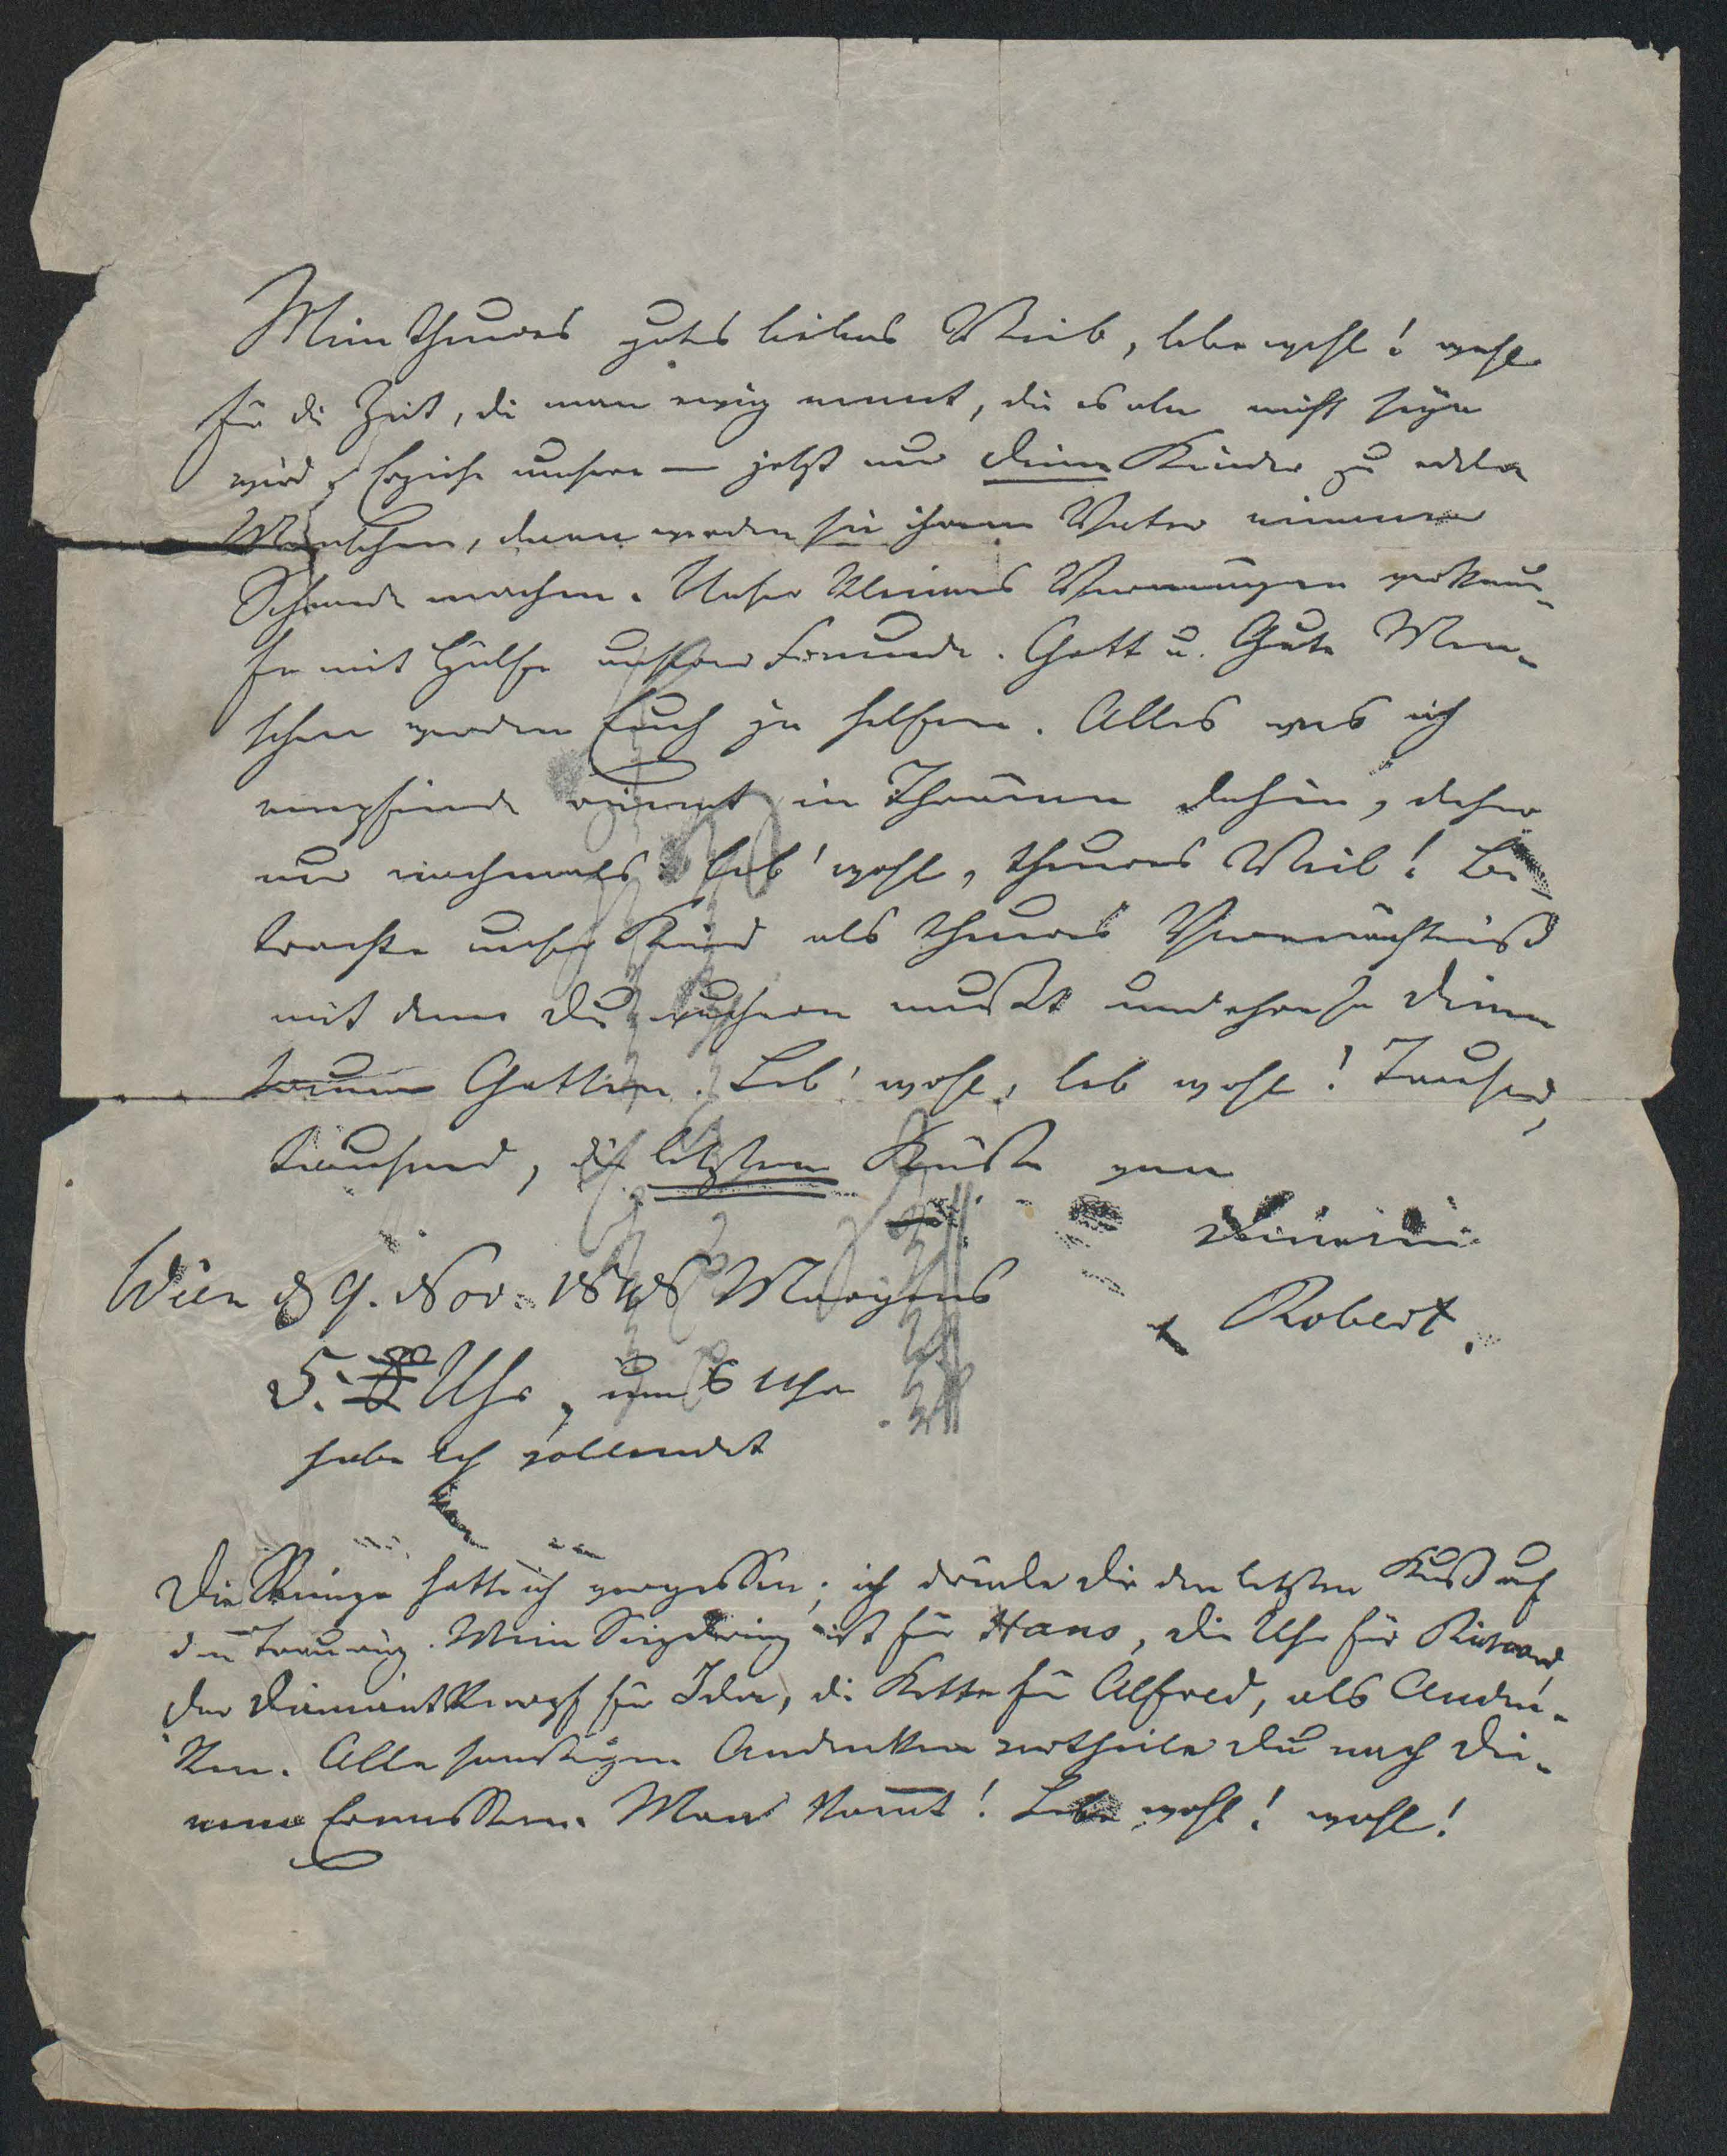 Mein theures gutes liebes Weib, lebe wohl! wohl
für die Zeit, die man ewig nennt, die es aber nicht seyn
wird. Erziehe unsere — jetzt nur Deine Kinder zu edlen
Menschen, dann werden sie ihrem Vater nimmer
Schande machen. Unser kleines Vermögen verkau-
fe mit Hülfe unserer Freunde. Gott u. Gute Men-
schen werden Euch ja helfen. Alles was ich
empfinde rinnt in Thränen dahin, daher
nur nochmals: Leb' wohl, theures Weib! Be-
trachte unser Kind als theures Vermächtniß
mit dem Du wuchern mußt und ehre so Deinen
treuen Gatten. Leb' wohl, leb wohl! Tausend,
tausend, die letzten Küsse von
Deinem
Robert.
Wien d 9. Nov. 1848 Morgens
5. Uhr, um 6 Uhr
habe ich vollendet
Die Ringe hatte ich vergessen; ich drücke Dir den letzten Kuß auf
den Trauring. Mein Siegelring ist für Hans, die Uhr für Richard,
der Diamantknopf für Ida, die Kette für Alfred, als Anden-
ken. Alle sonstigen Andenken vertheile Du nach Dei-
nem Ermessen. Man kom̅t! Lebe wohl! wohl!